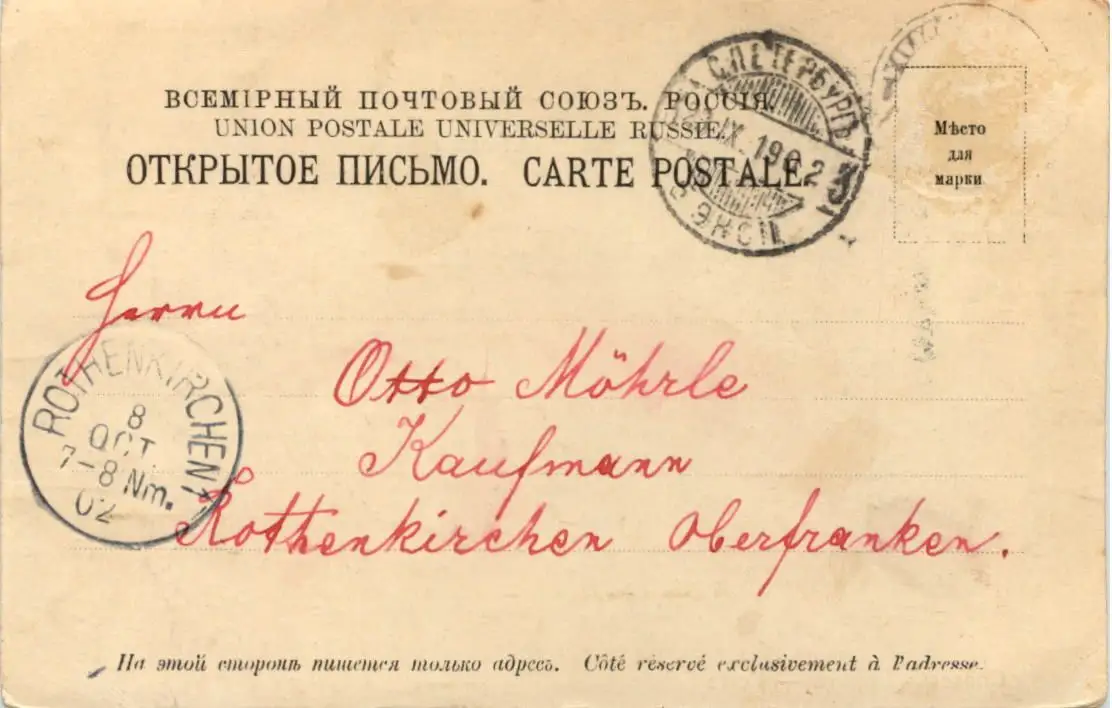 ВСЕМІРНЫЙ ПОЧТОВЫЙ СОЮЗЪ. РОССІЯ.
UNION POSTALE UNIVERSELLE RUSSIE.
ОТКРЫТОЕ ПИСЬМО. CARTE POSTALE.
С.ПЕТЕРБУРГЪ
IX.1902
3
ЭКСП.
Мѣсто
для
марки
Herrn
Otto Möhrle
Kaufmann
Rothenkirchen Oberfranken.
ROTHENKIRCHEN
8
OCT.
7-8 Nm.
02
На этой сторонѣ пишется только адресъ. Côté réservé exclusivement à l'adresse.